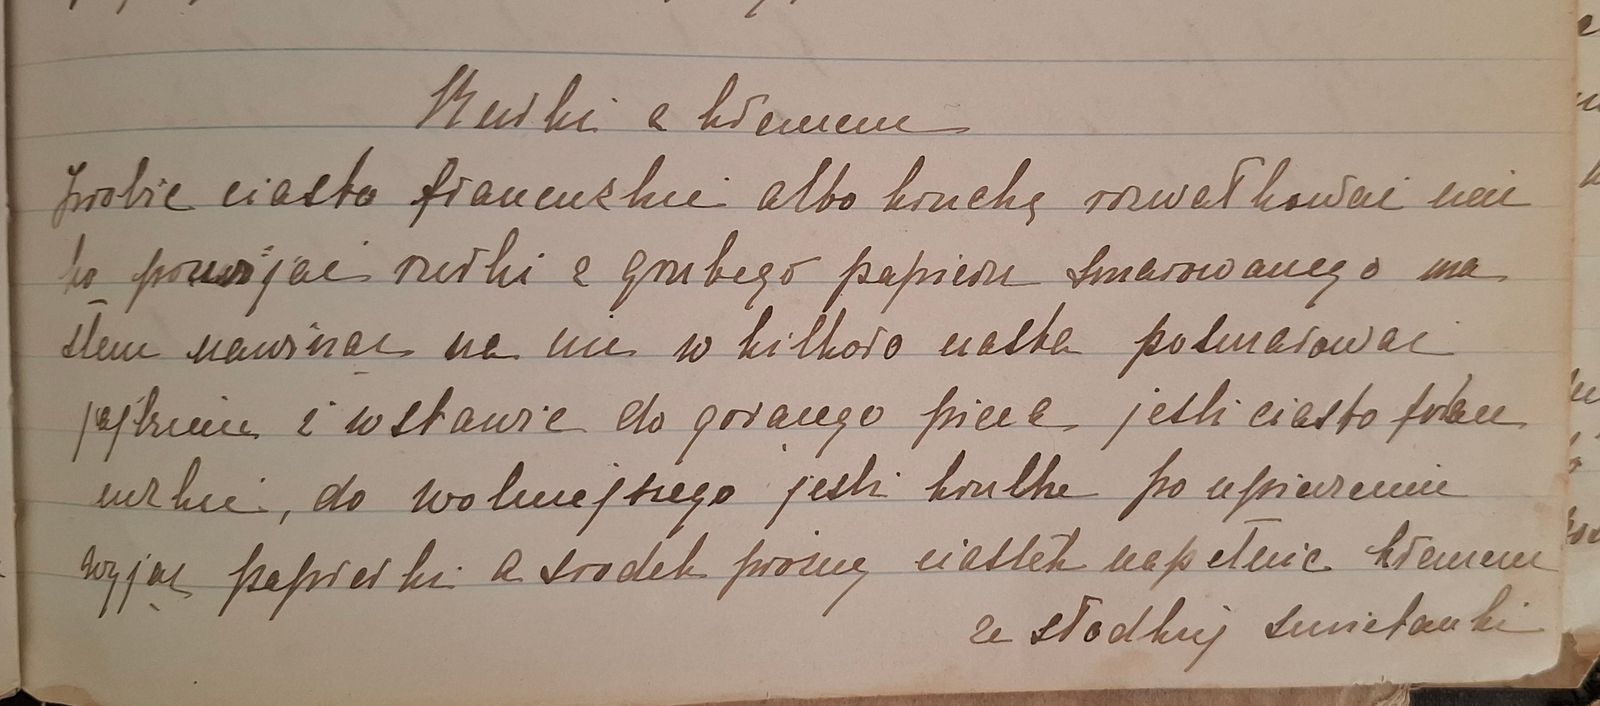 Rurki z kremem
Zrobić ciasto francuzkie albo kruchę rozwałkować cien
ko pozwijać rurki z grubego papieru smarowanego ma
słem nawinąć na nie w kilkoro ciasta posmarować
jajkiem i wstawić do gorango pieca jeśli ciasto fran
cuzkie, do wolniejszego jeśli kruche po upieczeniu
wyjąć papierki a środek prożny ciastek napełnić kremem
ze słodkiej smietanki